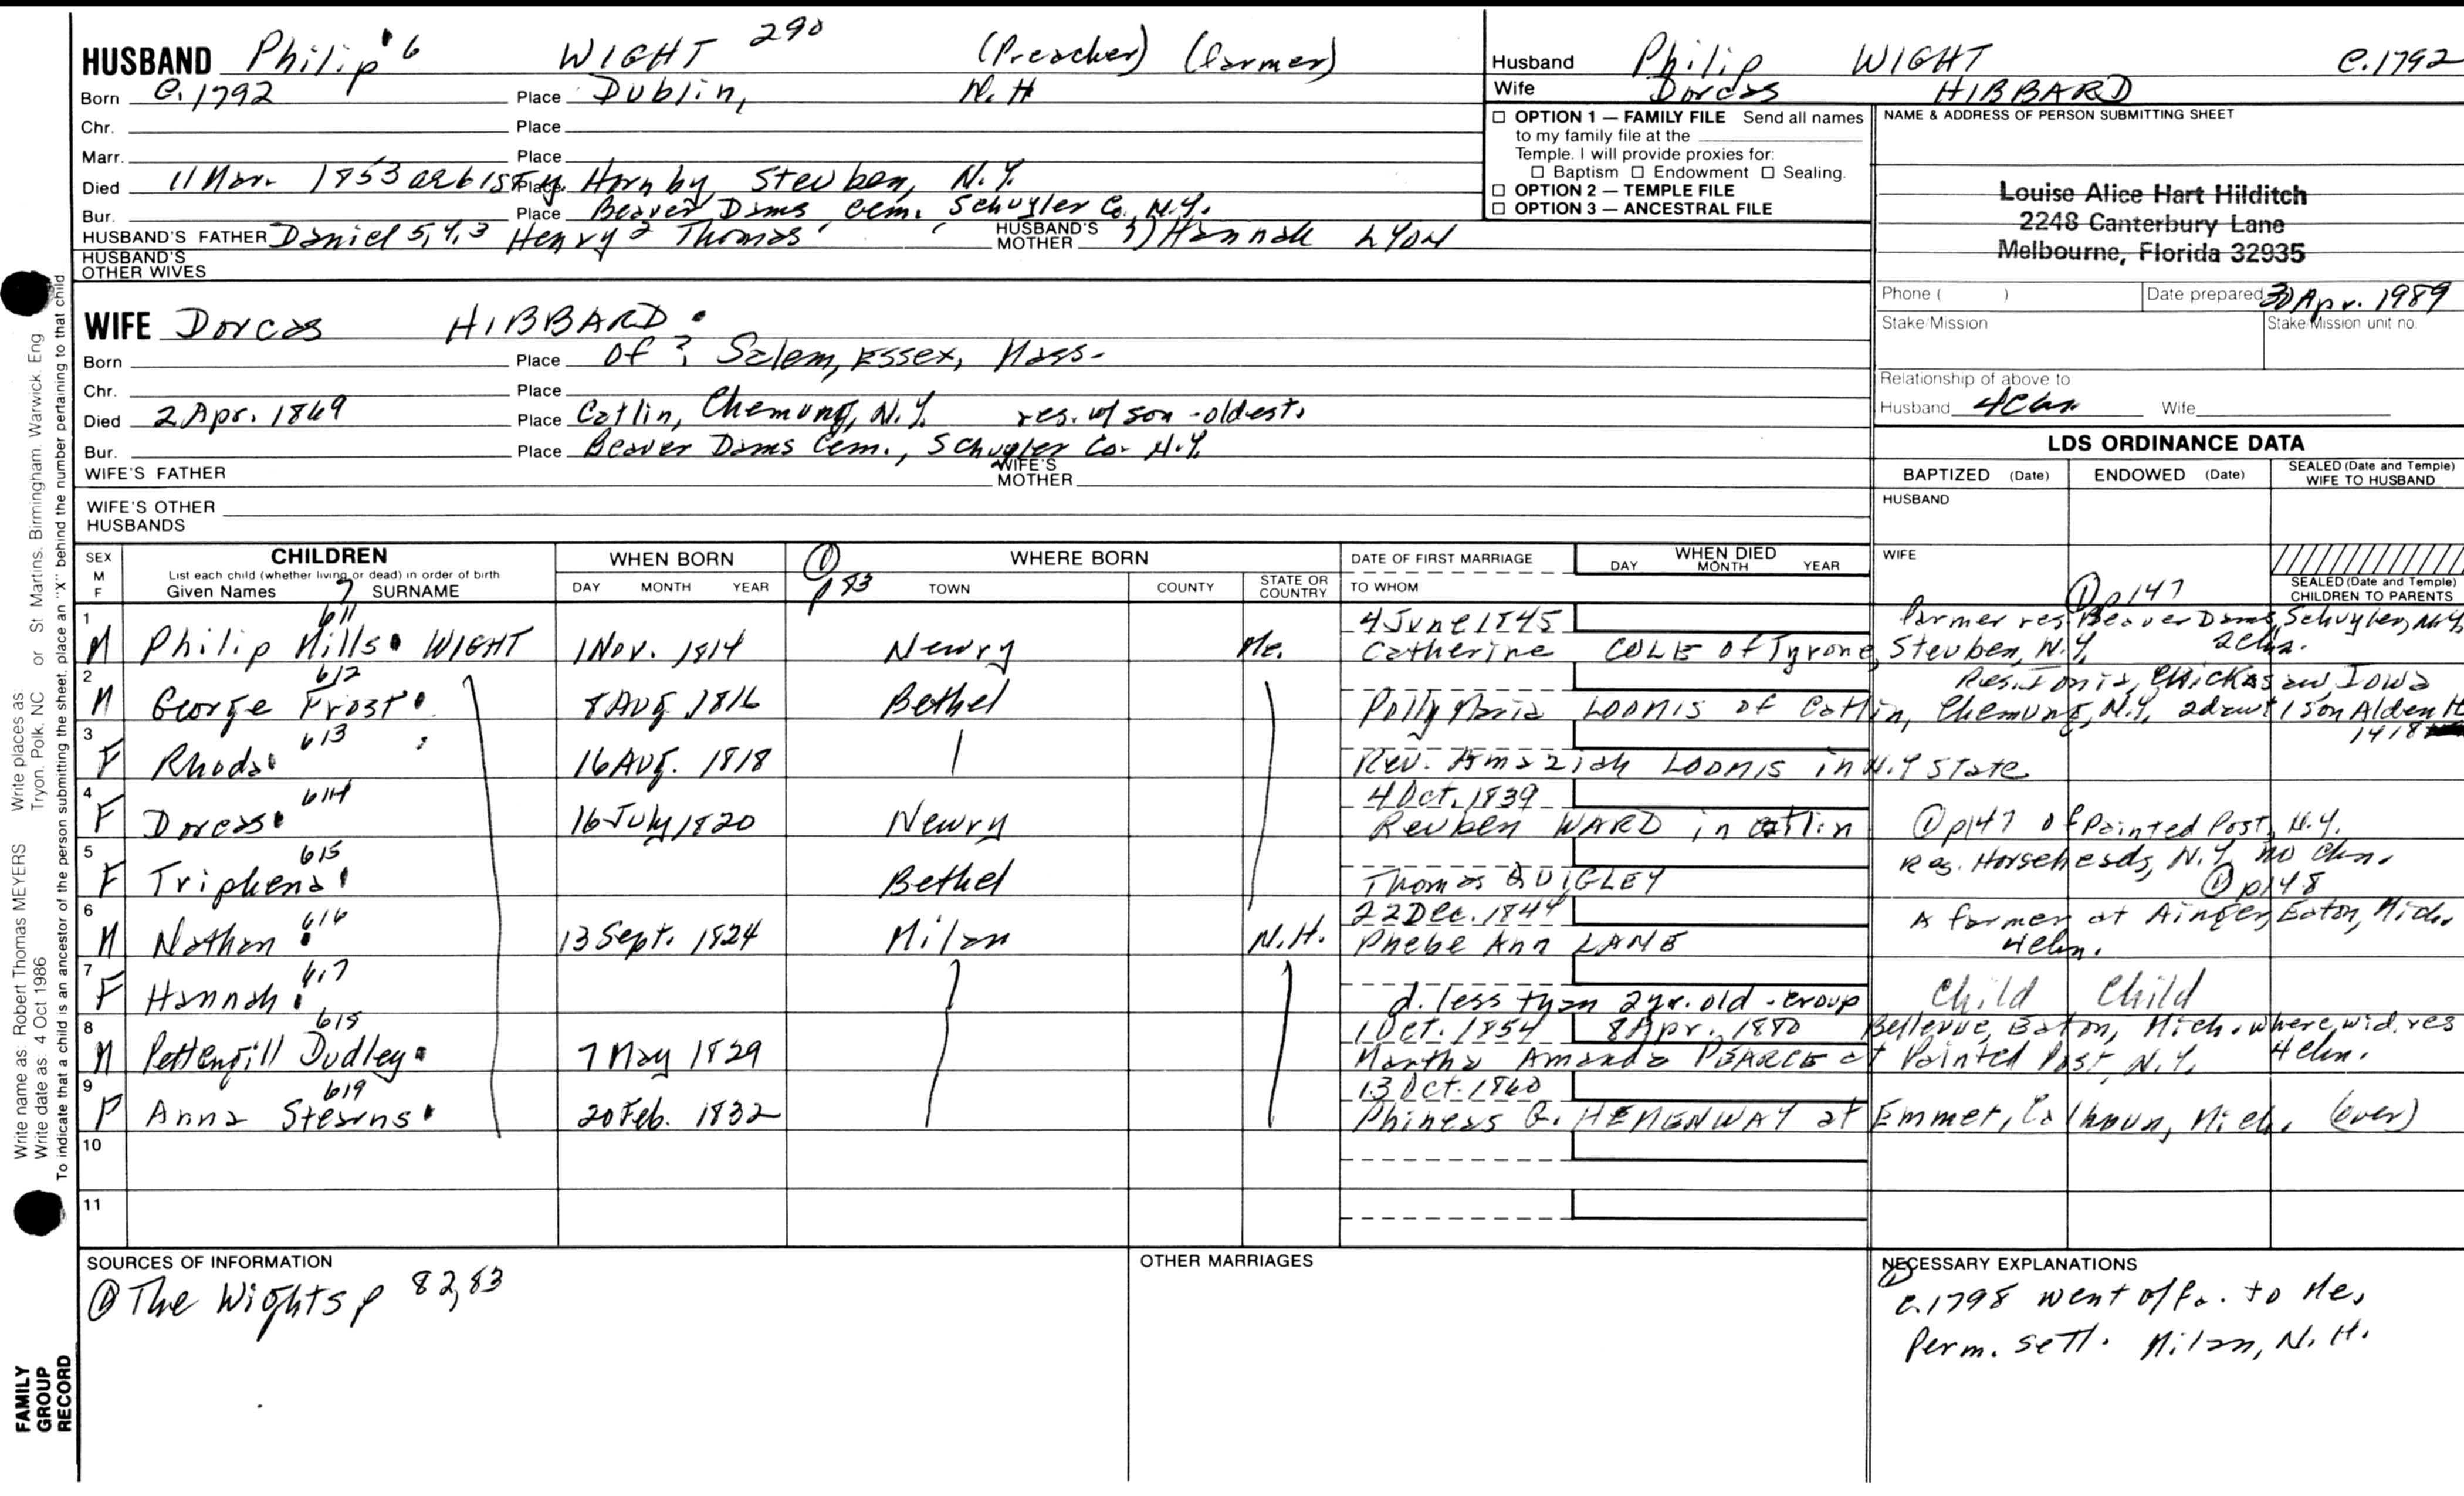 HUSBAND Philip 6 WIGHT 290 (Preacher) (farmer)
Born c. 1792 Place Dublin, N.H
Chr. Place
Marr. Place
Died 11 Mar. 1853 ae 61 Place Hornby, Steuben, N.Y.
Bur. Place Beaver Dams Cem. Schuyler Co., N.Y.
HUSBAND'S FATHER Daniel 5,4,3 Henry 2 Thomas 1 HUSBAND'S MOTHER Hannah LYON
HUSBAND'S OTHER WIVES
WIFE Dorcas HIBBARD
Born Place Of ? Salem, Essex, Mass.
Chr. Place
Died 2 Apr. 1869 Place Catlin, Chemung, N.Y. res. w/ son - oldest.
Bur. Place Beaver Dams Cem., Schuyler Co. N.Y.
WIFE'S FATHER WIFE'S MOTHER
WIFE'S OTHER HUSBANDS
Husband Philip WIGHT c. 1792
Wife Dorcas HIBBARD
☐ OPTION 1 — FAMILY FILE Send all names
to my family file at the
Temple. I will provide proxies for:
☐ Baptism ☐ Endowment ☐ Sealing.
☐ OPTION 2 — TEMPLE FILE
☐ OPTION 3 — ANCESTRAL FILE
NAME & ADDRESS OF PERSON SUBMITTING SHEET
Louise Alice Hart Hilditch
2248 Canterbury Lane
Melbourne, Florida 32935
Phone ( ) Date prepared 30 Apr. 1989
Stake/Mission Stake/Mission unit no.
Relationship of above to
Husband Wife
LDS ORDINANCE DATA
BAPTIZED (Date) ENDOWED (Date) SEALED (Date and Temple) WIFE TO HUSBAND
HUSBAND
WIFE
SEALED (Date and Temple) CHILDREN TO PARENTS
SEX M F CHILDREN WHEN BORN ① p 83 WHERE BORN DATE OF FIRST MARRIAGE WHEN DIED
List each child (whether living or dead) in order of birth
Given Names 7 SURNAME DAY MONTH YEAR TOWN COUNTY STATE OR COUNTRY TO WHOM DAY MONTH YEAR
① p147
1 611 4 June 1845 Farmer res. Beaver Dams, Schuyler, N.Y.
M Philip Mills WIGHT 1 Nov. 1814 Newry Me. Catherine COLE of Tyrone, Steuben, N.Y. 2 chn.
2 612 Res. Ionia, Chickasaw, Iowa
M George Frost 8 Aug 1816 Bethel Polly Maria LOOMIS of Catlin, Chemung, N.Y. 1 son Alden H
1418
3 613
F Rhoda 16 Aug. 1818 Rev. Amaziah LOOMIS in N.Y State
4 614 4 Oct. 1839
F Dorcas 16 July 1820 Newry Reuben WARD in Catlin ① p147 of Painted Post, N.Y.
5 615 Res. Horseheads, N.Y. no chn.
F Triphena Bethel Thomas QUIGLEY ① p148
6 616 22 Dec. 1844 A farmer at Ainger, Eaton, Mich.
M Nathan 13 Sept. 1824 Milan N.H. Phebe Ann LANE 4 chn.
7 617
F Hannah d. less than 2 yr. old - croup Child Child
8 618 1 Oct. 1854 8 Apr. 1880 Bellevue, Eaton, Mich. where wid. res
M Pettengill Dudley 7 May 1829 Martha Amanda PEARCE at Painted Post, N.Y. 4 chn.
9 619 13 Oct. 1860
F Anna Stearns 20 Feb. 1832 Phineas G. HEMENWAY at Emmet, Calhoun, Mich. (over)
10
11
SOURCES OF INFORMATION
① The Wights p 82,83
OTHER MARRIAGES
NECESSARY EXPLANATIONS
①
c. 1798 went to Me.
Perm. settl. Milan, N.H.
Write name as: Robert Thomas MEYERS Write places as Tryon, Polk, NC or St Martins, Birmingham, Warwick, Eng
Write date as: 4 Oct 1986
To indicate that a child is an ancestor of the person submitting the sheet, place an "X" behind the number pertaining to that child.
FAMILY
GROUP
RECORD